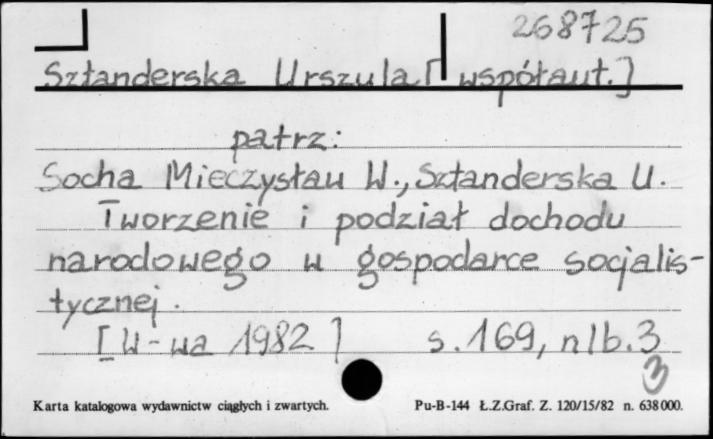 268725
Sztanderska Urszula [współaut.]
patrz:
Socha Mieczysław W., Sztanderska U.
Tworzenie i podział dochodu
narodowego w gospodarce socjalis-
tycznej.
[W-wa 1982] s. 169, nlb. 3
3
Karta katalogowa wydawnictw ciągłych i zwartych. Pu-B-144 Ł.Z.Graf. Z. 120/15/82 n. 638000.